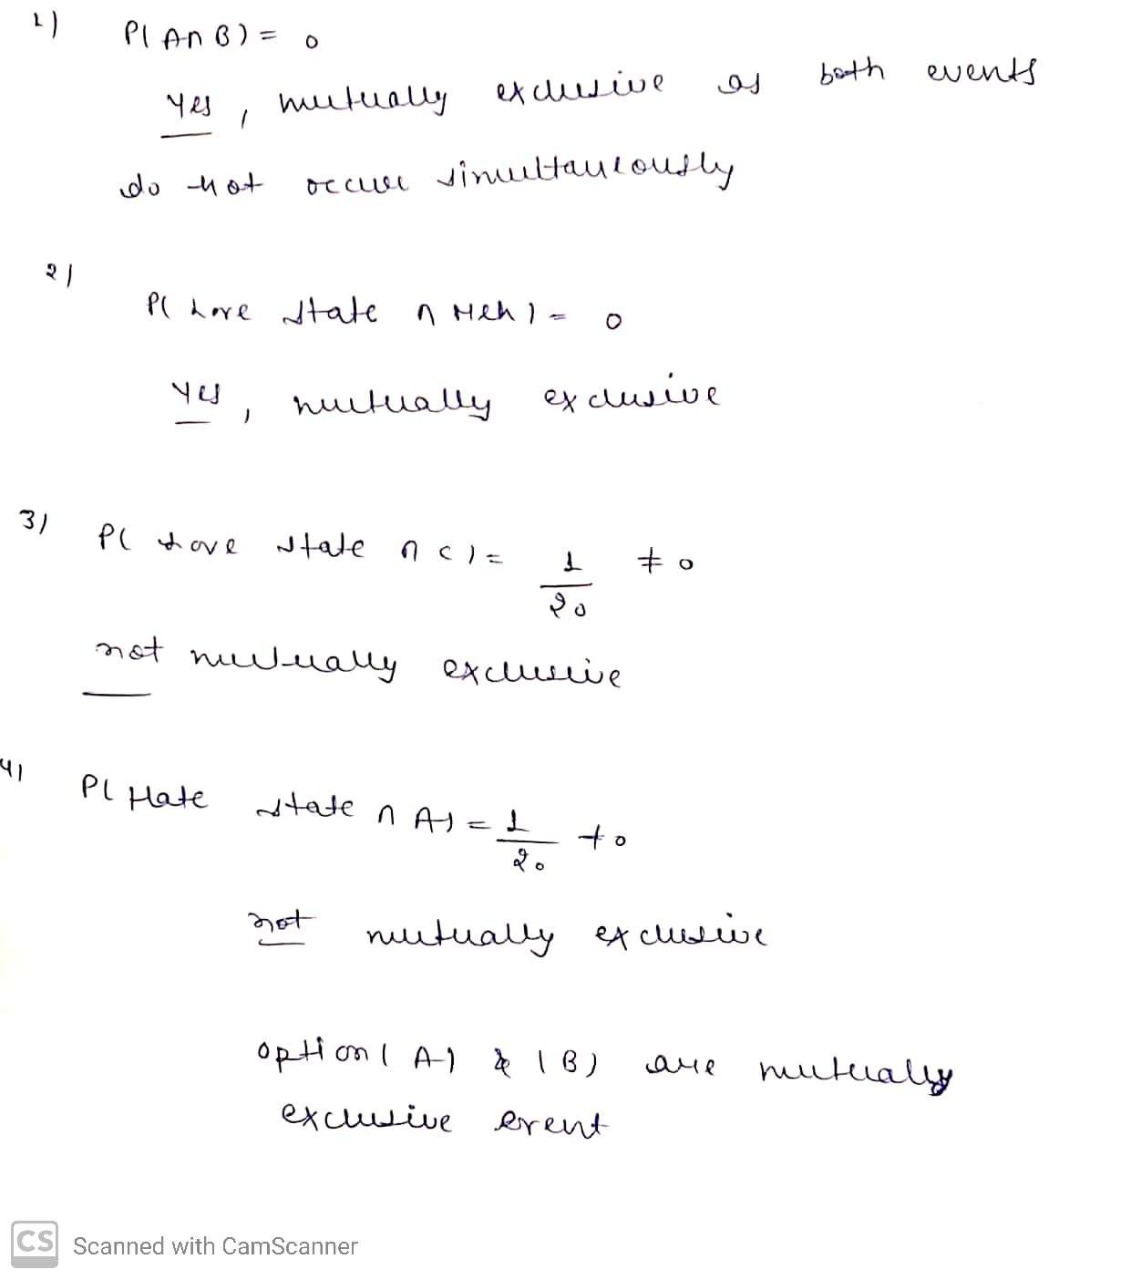 1) P(A∩B) = 0
Yes, mutually exclusive as both events
do not occur simultaneously
2) P(Love state ∩ Meh) = 0
Yes, mutually exclusive
3) P(Love state ∩ C) = 1/20 ≠ 0
not mutually exclusive
4) P(Hate state ∩ A) = 1/20 ≠ 0
not mutually exclusive
option (A) & (B) are mutually
exclusive event
CS Scanned with CamScanner